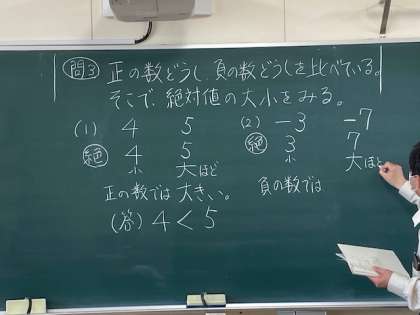 問3 正の数どうし、負の数どうしを比べている。
そこで、絶対値の大小をみる。
(1) 4 5 (2) -3 -7
絶 4 5 絶 3 7
小 大ほど 小 大ほど
正の数では大きい。 負の数では
(答) 4 < 5